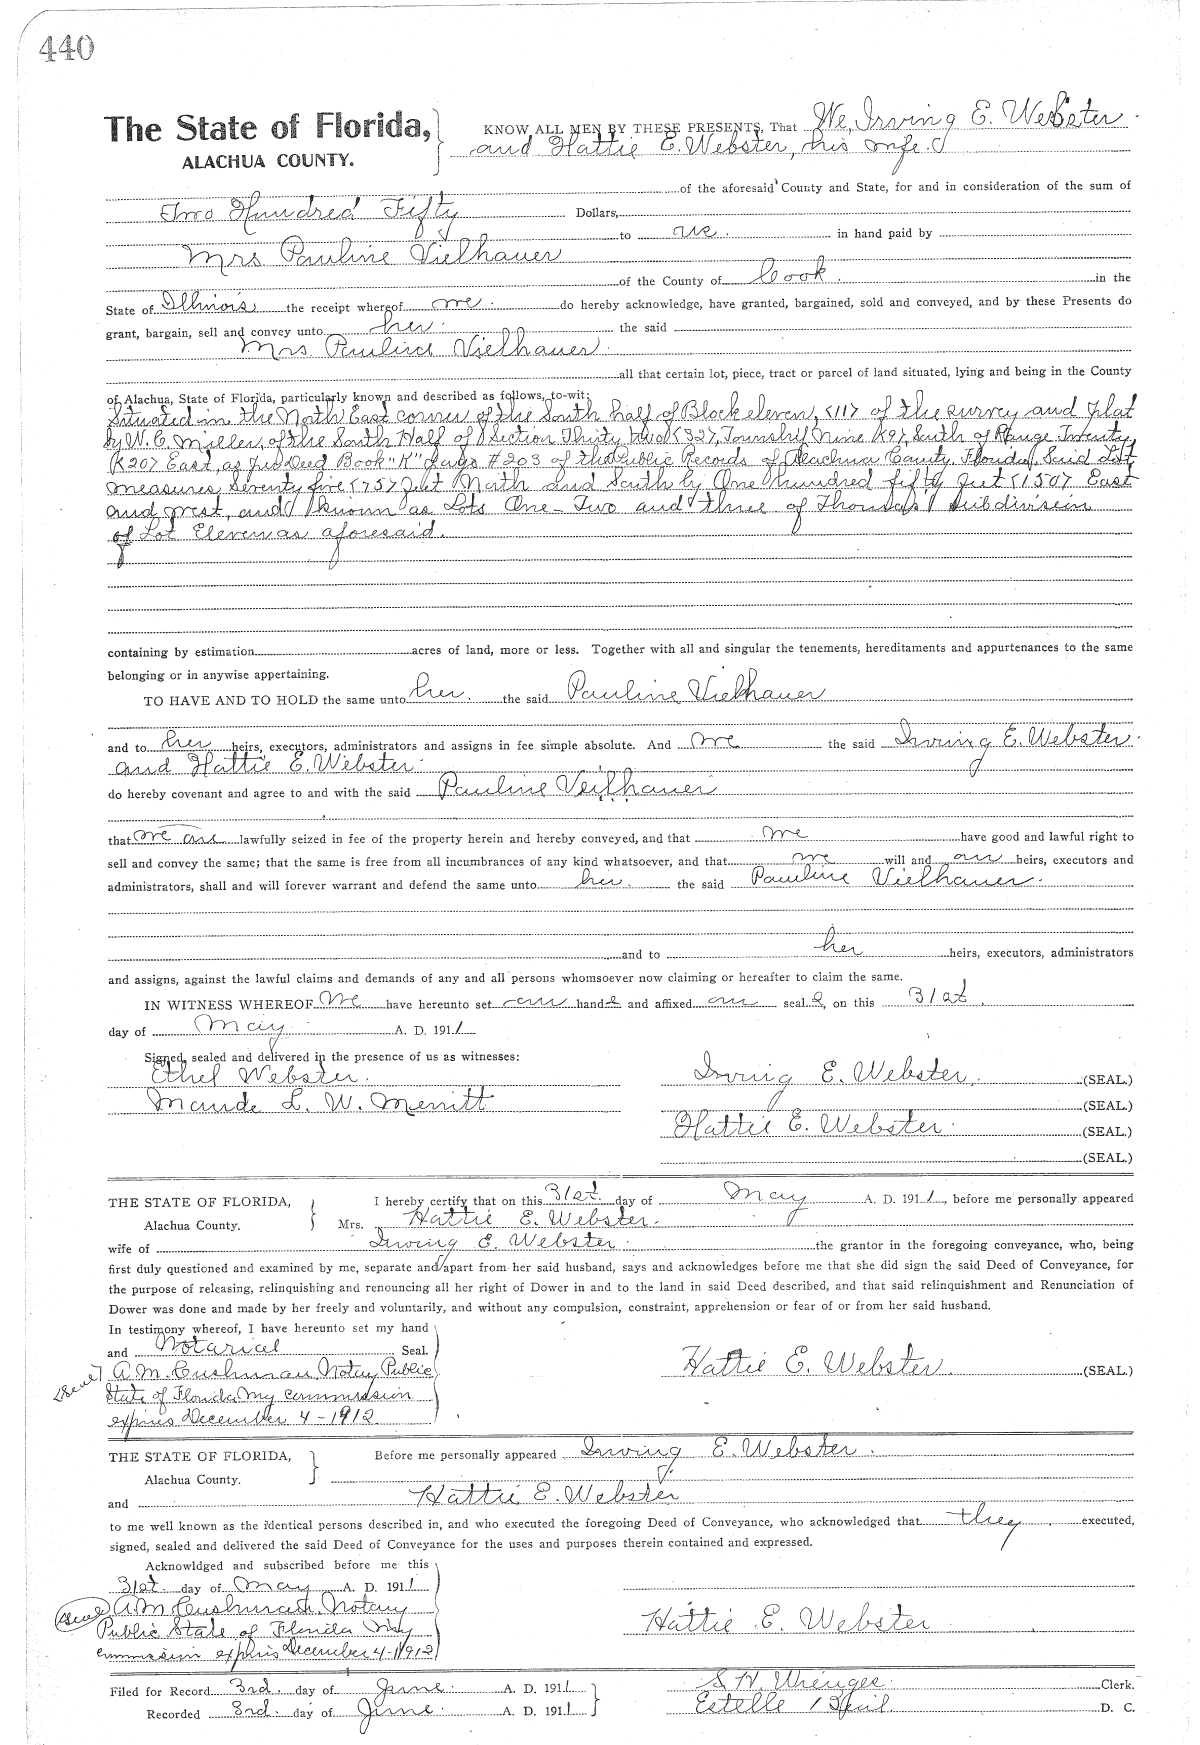 440
The State of Florida,
ALACHUA COUNTY.
KNOW ALL MEN BY THESE PRESENTS, That We, Irving E. Webster
and Hattie E. Webster, his wife.
of the aforesaid County and State, for and in consideration of the sum of
Two Hundred Fifty Dollars,
to us. in hand paid by
Mrs Pauline Vielhauer
of the County of Cook. in the
State of Illinois the receipt whereof we. do hereby acknowledge, have granted, bargained, sold and conveyed, and by these Presents do
grant, bargain, sell and convey unto her. the said
Mrs Pauline Vielhauer.
all that certain lot, piece, tract or parcel of land situated, lying and being in the County
of Alachua, State of Florida, particularly known and described as follows, to-wit:
Situated in the North East corner of the South half of Block eleven, (11) of the survey and plat
by W. C. Miller, of the South Half of Section Thirty two (32), Township Nine (9), South of Range Twenty
(20) East, as per Deed Book "K" page #203 of the Public Records of Alachua County Florida, Said Lot
measures seventy five (75) feet North and South by One hundred fifty feet (150) East
and west, and known as Lots One-Two and three of subdivision
of Lot Eleven as aforesaid.
containing by estimation acres of land, more or less. Together with all and singular the tenements, hereditaments and appurtenances to the same
belonging or in anywise appertaining.
TO HAVE AND TO HOLD the same unto her. the said Pauline Vielhauer
and to her heirs, executors, administrators and assigns in fee simple absolute. And we the said Irving E. Webster
and Hattie E. Webster
do hereby covenant and agree to and with the said Pauline Veilhauer
that we are lawfully seized in fee of the property herein and hereby conveyed, and that we have good and lawful right to
sell and convey the same; that the same is free from all incumbrances of any kind whatsoever, and that we will and our heirs, executors and
administrators, shall and will forever warrant and defend the same unto her. the said Pauline Vielhauer.
and to her heirs, executors, administrators
and assigns, against the lawful claims and demands of any and all persons whomsoever now claiming or hereafter to claim the same.
IN WITNESS WHEREOF We have hereunto set our hands and affixed our seals, on this 31st.
day of May A. D. 1911
Signed, sealed and delivered in the presence of us as witnesses:
Ethel Webster. Irving E. Webster. (SEAL.)
Maude L. W. Merritt (SEAL.)
Hattie E. Webster. (SEAL.)
(SEAL.)
THE STATE OF FLORIDA, I hereby certify that on this 31st. day of May A. D. 1911, before me personally appeared
Alachua County. Mrs. Hattie E. Webster.
wife of Irving E. Webster. the grantor in the foregoing conveyance, who, being
first duly questioned and examined by me, separate and apart from her said husband, says and acknowledges before me that she did sign the said Deed of Conveyance, for
the purpose of releasing, relinquishing and renouncing all her right of Dower in and to the land in said Deed described, and that said relinquishment and Renunciation of
Dower was done and made by her freely and voluntarily, and without any compulsion, constraint, apprehension or fear of or from her said husband.
In testimony whereof, I have hereunto set my hand
and Notarial Seal.
(Seal) A. M. Cushman, Notary Public Hattie E. Webster (SEAL)
State of Florida My commission
expires December 4-1912.
THE STATE OF FLORIDA, Before me personally appeared Irving E. Webster.
Alachua County.
and Hattie E. Webster
to me well known as the identical persons described in, and who executed the foregoing Deed of Conveyance, who acknowledged that they executed,
signed, sealed and delivered the said Deed of Conveyance for the uses and purposes therein contained and expressed.
Acknowldged and subscribed before me this
31st. day of May A. D. 1911
(Seal) A. M. Cushman. Notary
Public State of Florida My Hattie E. Webster
commission expires December 4-1912
Filed for Record 3rd. day of June. A. D. 1911 S. H. Wienges. Clerk.
Recorded 3rd. day of June. A. D. 1911 Estelle D. C.